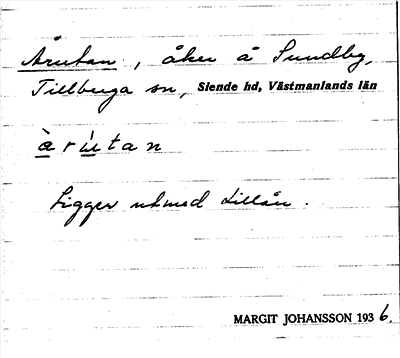 Årutan, åker å Sundby,
Tillberga sn, Siende hd, Västmanlands län
à r ù t a n
Ligger utmed Lillån.
MARGIT JOHANSSON 1936.